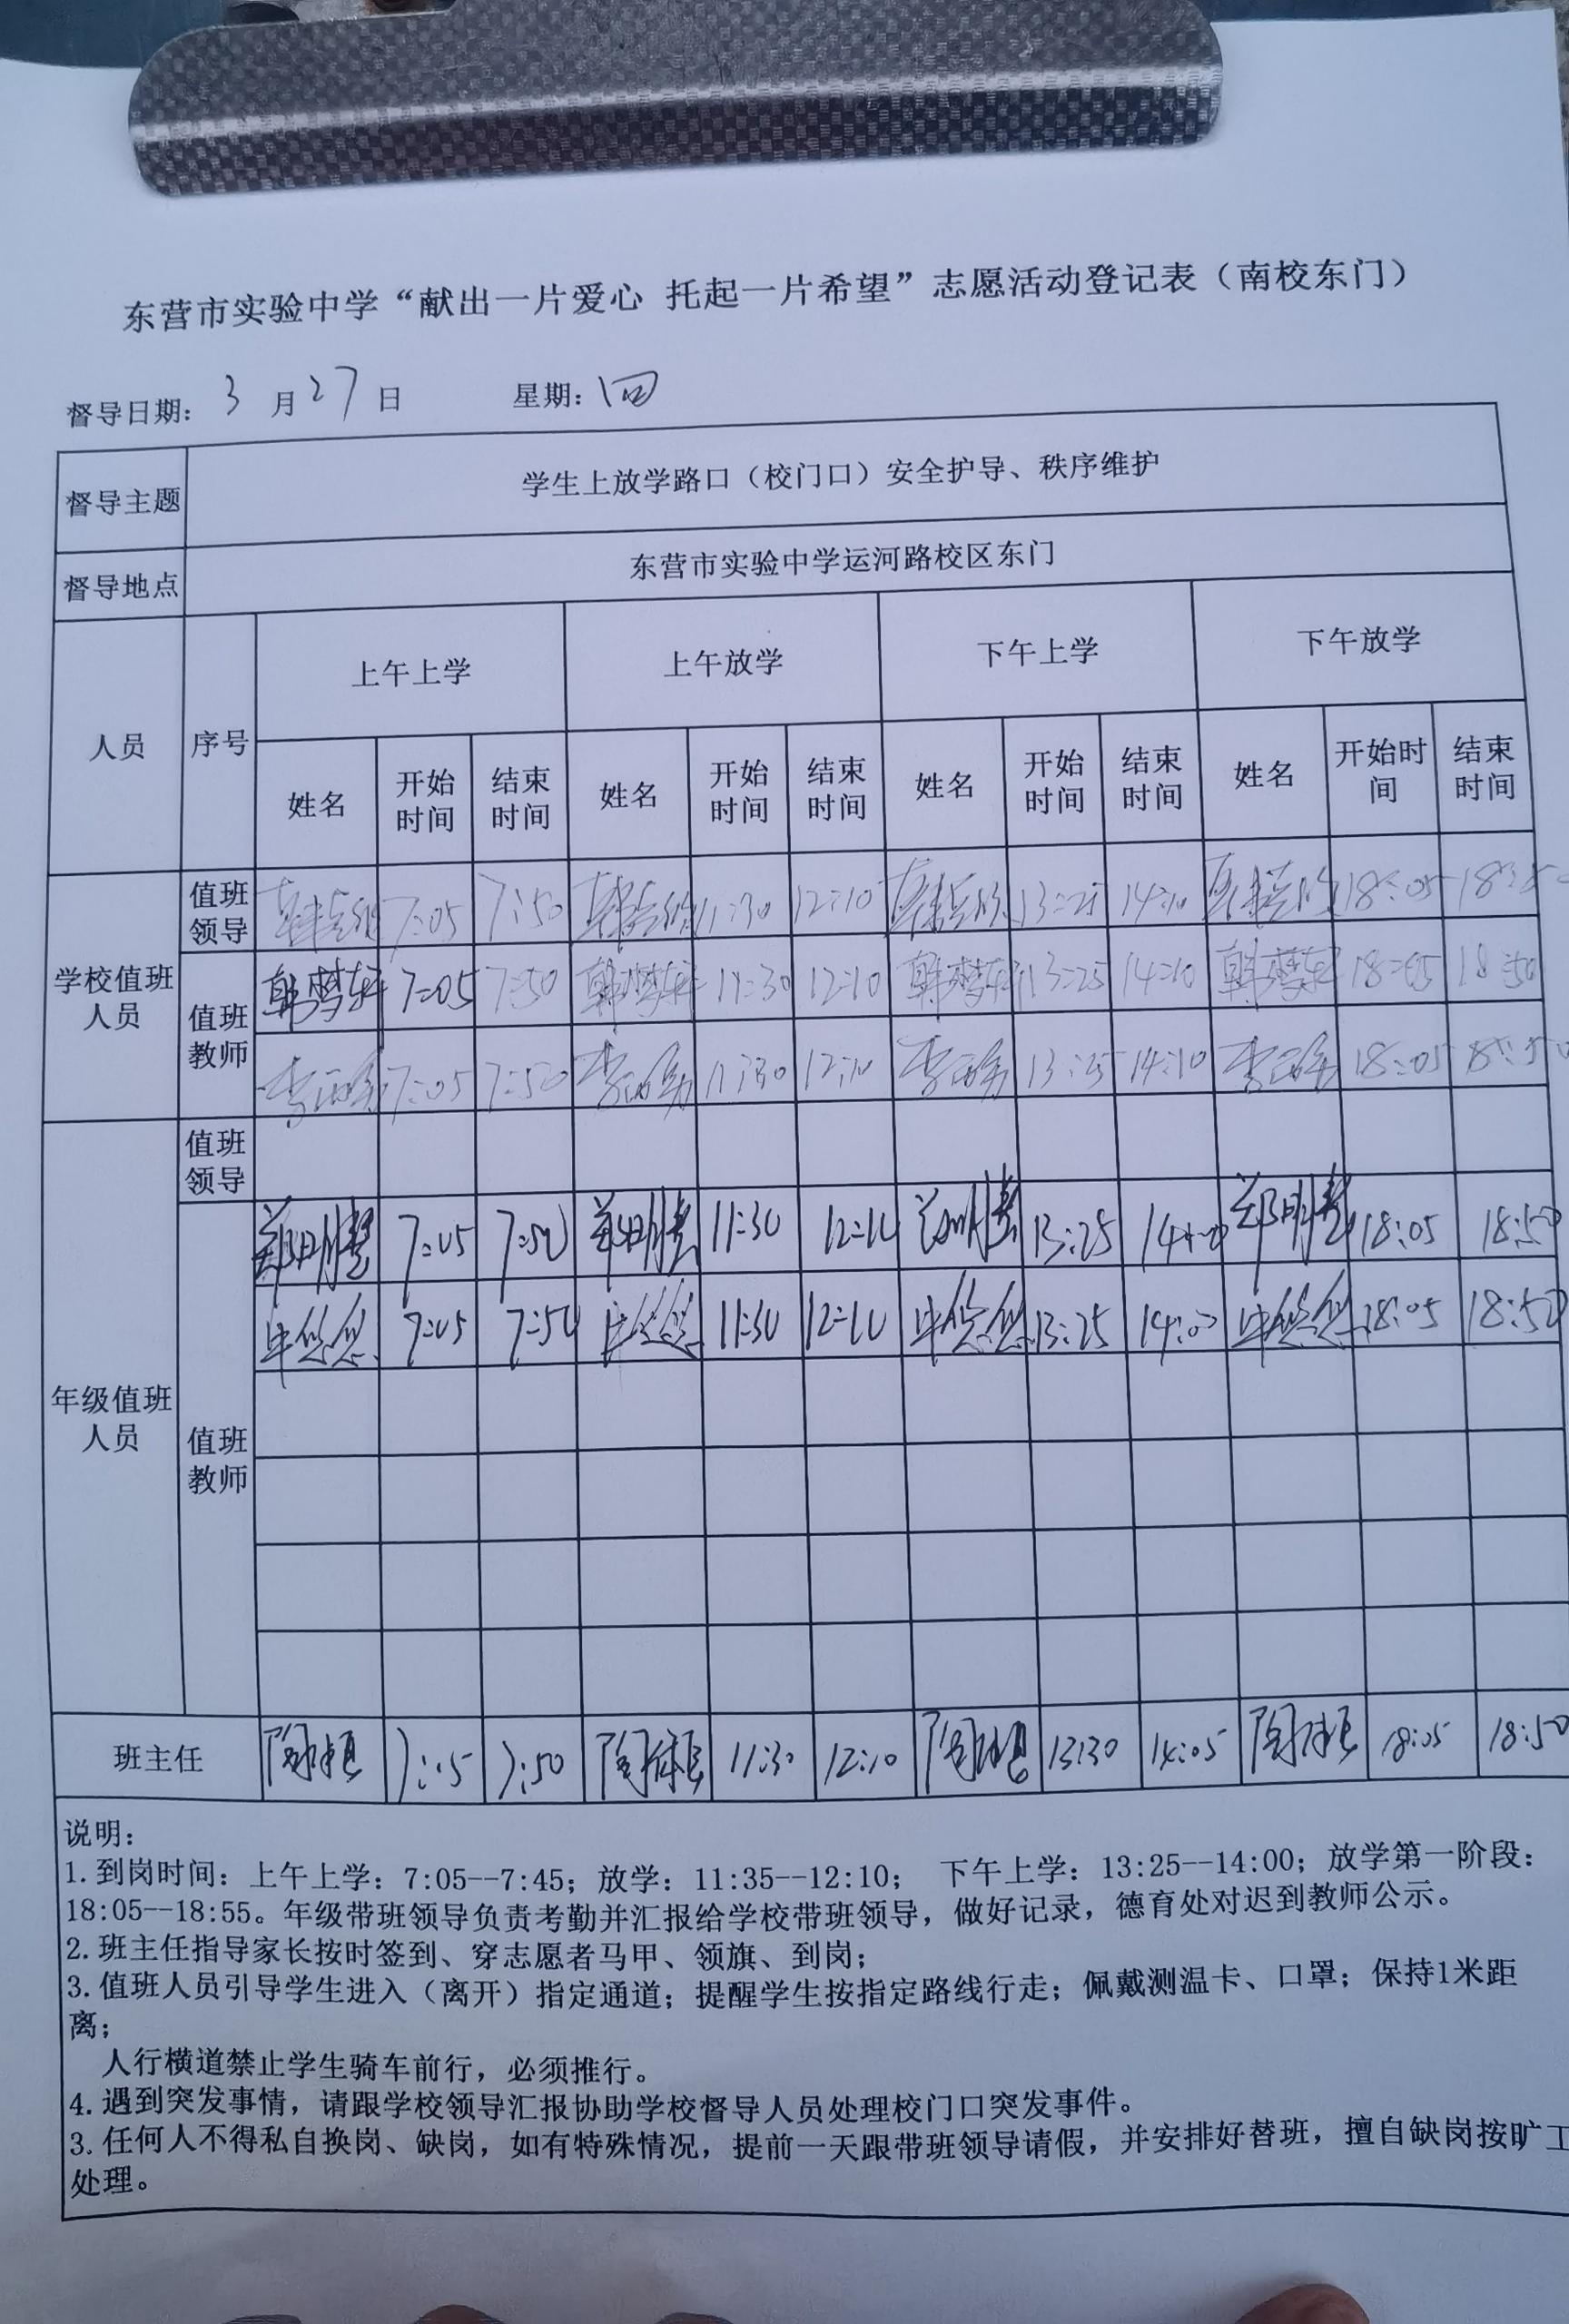 东营市实验中学“献出一片爱心 托起一片希望”志愿活动登记表（南校东门）
督导日期： 3 月 27 日 星期：四
督导主题 学生上放学路口（校门口）安全护导、秩序维护
督导地点 东营市实验中学运河路校区东门
人员 序号 上午上学 上午放学 下午上学 下午放学
姓名 开始时间 结束时间 姓名 开始时间 结束时间 姓名 开始时间 结束时间 姓名 开始时间 结束时间
学校值班人员 值班领导 7:05 7:50 11:30 12:10 13:25 14:10 18:05 18:50
值班教师 韩梦轩 7:05 7:50 韩梦轩 11:30 12:10 韩梦轩 13:25 14:10 韩梦轩 18:05 18:50
7:05 7:50 11:30 12:10 13:25 14:10 18:05 18:50
年级值班人员 值班领导
值班教师 郑明慧 7:05 7:50 郑明慧 11:30 12:10 郑明慧 13:25 14:00 郑明慧 18:05 18:50
毕悠悠 7:05 7:50 毕悠悠 11:30 12:10 毕悠悠 13:25 14:00 毕悠悠 18:05 18:50
班主任 7:50 11:30 12:10 13:30 14:05 18:05 18:50
说明：
1.到岗时间：上午上学：7:05--7:45；放学：11:35--12:10； 下午上学：13:25--14:00；放学第一阶段：
18:05--18:55。年级带班领导负责考勤并汇报给学校带班领导，做好记录，德育处对迟到教师公示。
2.班主任指导家长按时签到、穿志愿者马甲、领旗、到岗；
3.值班人员引导学生进入（离开）指定通道；提醒学生按指定路线行走；佩戴测温卡、口罩；保持1米距
离；
人行横道禁止学生骑车前行，必须推行。
4.遇到突发事情，请跟学校领导汇报协助学校督导人员处理校门口突发事件。
3.任何人不得私自换岗、缺岗，如有特殊情况，提前一天跟带班领导请假，并安排好替班，擅自缺岗按旷工
处理。